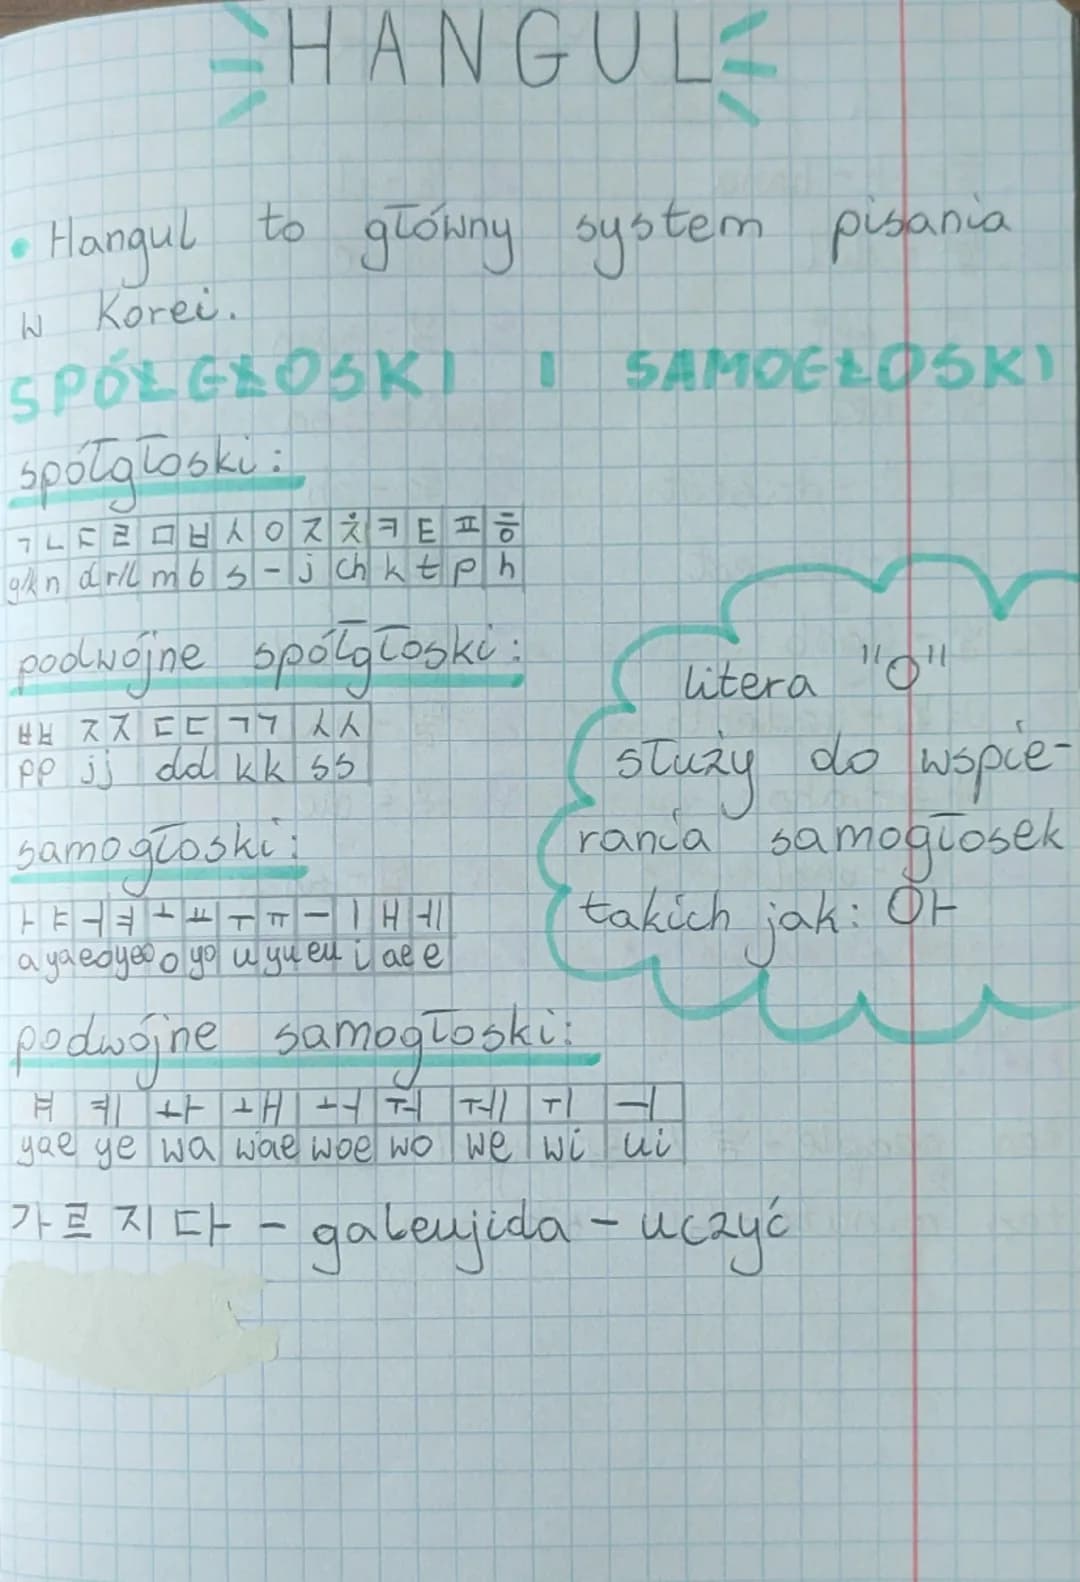 HANGUL
• Hangul to główny system pisania
w Korei.
SPÓŁGŁOSKI I SAMOGŁOSKI
spółgłoski:
ㄱ ㄴ ㄷ ㄹ ㅁ ㅂ ㅅ ㅇ ㅈ ㅊ ㅋ ㅌ ㅍ ㅎ
g/k n d r/l m b s - j ch k t p h
podwójne spółgłoski:
ㅃ ㅉ ㄸ ㄲ ㅆ
pp jj dd kk ss
litera "O"
służy do wspie-
rania samogłosek
takich jak: 아
samogłoski:
ㅏ ㅑ ㅓ ㅕ ㅗ ㅛ ㅜ ㅠ ㅡ ㅣ ㅐ ㅔ
a ya eo yeo o yo u yu eu i ae e
podwójne samogłoski:
ㅒ ㅖ ㅘ ㅙ ㅗㅓ ㅝ ㅞ ㅟ ㅢ
yae ye wa wae woe wo we wi ui
가르지다 - galeujida - uczyć